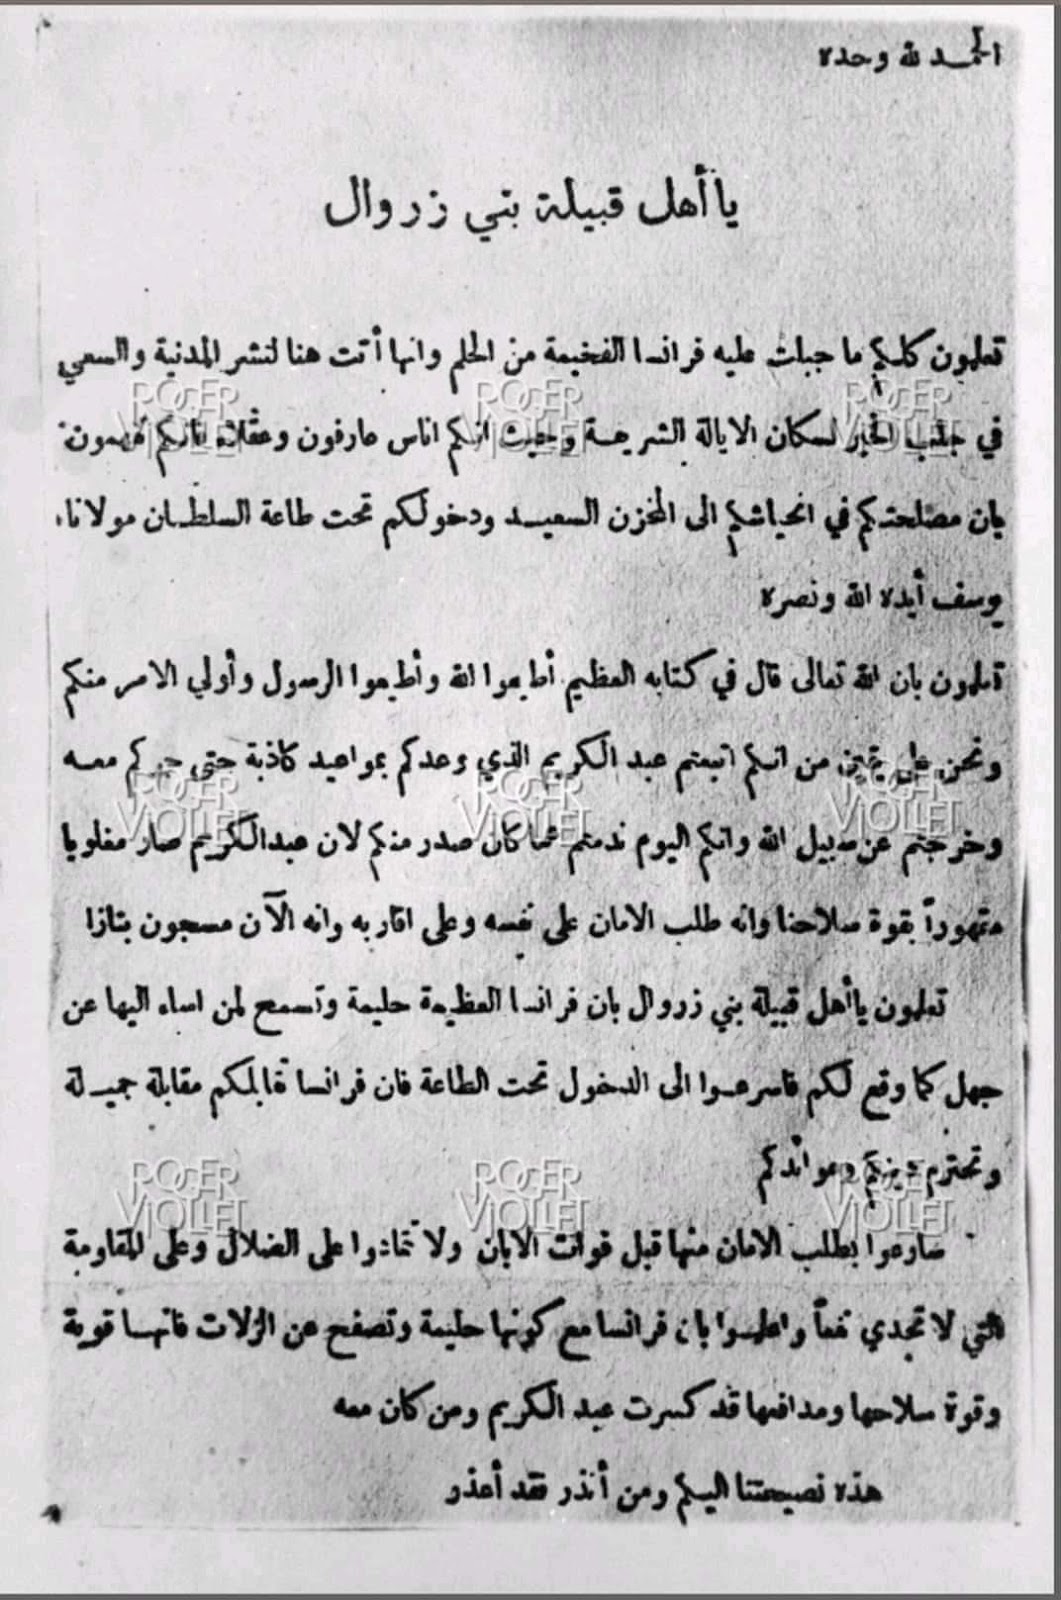 الحمد لله وحده
يا أهل قبيلة بني زروال
تعلمون كلكم ما جبلت عليه فرانسا الفخيمة من الحلم وانها أتت هنا لنشر المدنية والسعي
في جلب الخير لسكان الايالة الشريفة وحيث انكم اناس عارفون وعقلاء فانكم تفهمون
بان مصلحتكم في انحياشكم الى المخزن السعيد ودخولكم تحت طاعة السلطان مولانا
يوسف أيده الله ونصره
تعلمون بان الله تعالى قال في كتابه العظيم أطيعوا الله وأطيعوا الرسول وأولي الامر منكم
ونحن على يقين من انكم اتبعتم عبد الكريم الذي وعدكم بمواعيد كاذبة حتى جركم معه
وخرجتم عن سبيل الله وانكم اليوم ندمتم عما كان صدر منكم لان عبد الكريم صار مغلوبا
مقهوراً بقوة سلاحنا وانه طلب الامان على نفسه وعلى اقاربه وانه الآن مسجون بتازا
تعلمون يا أهل قبيلة بني زروال بان فرانسا العظيمة حليمة وتسمح لمن اساء اليها عن
جهل كما وقع لكم فاسرعوا الى الدخول تحت الطاعة فان فرانسا تقابلكم مقابلة جميلة
وتحترم دينكم وعوائدكم
سارعوا بطلب الامان منها قبل فوات الابان ولا تمادوا على الضلال وعلى المقاومة
التي لا تجدي نفعاً واعلموا بان فرانسا مع كونها حليمة وتصفح عن الزلات فانها قوية
وقوة سلاحها ومدافعها قد كسرت عبد الكريم ومن كان معه
هذه نصيحتنا اليكم ومن أنذر فقد أعذر
ROGER VIOLLET
ROGER VIOLLET
ROGER VIOLLET
ROGER VIOLLET
ROGER VIOLLET
ROGER VIOLLET
ROGER VIOLLET
ROGER VIOLLET
ROGER VIOLLET